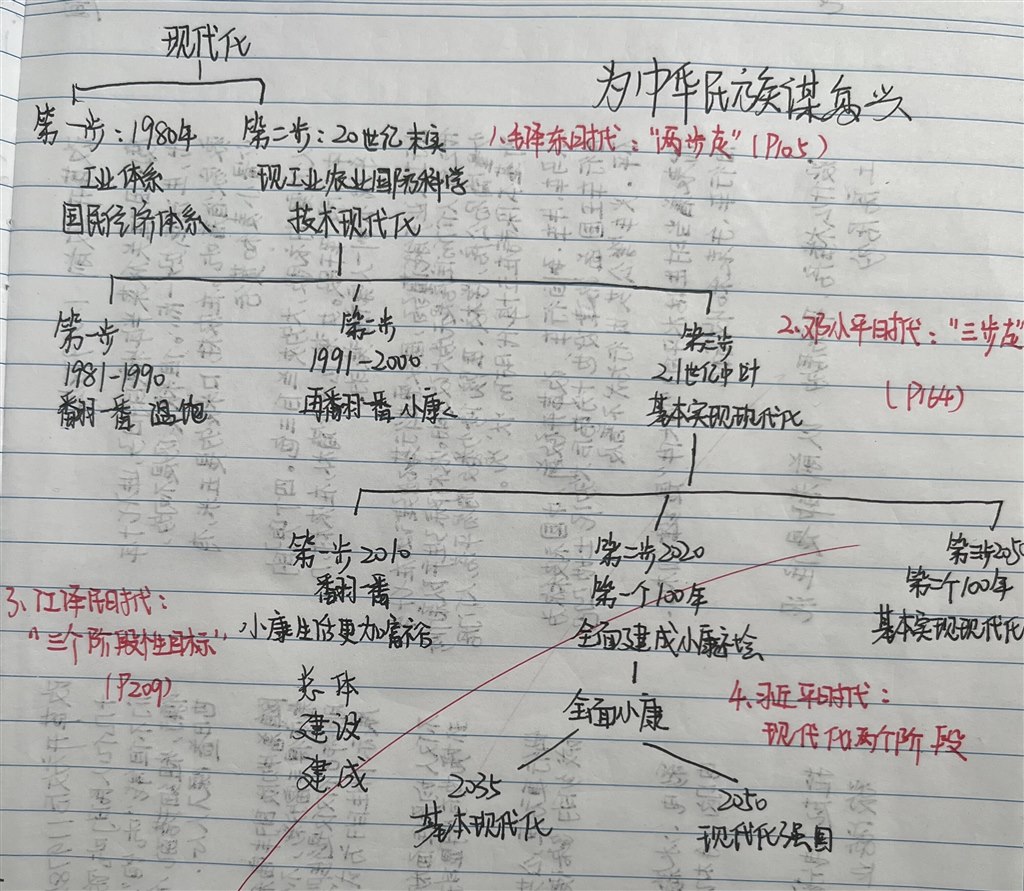 现代化
为中华民族谋复兴
第一步：1980年
工业体系
国民经济体系
第二步：20世纪末实
现工业农业国防科学
技术现代化
1.毛泽东时代："两步走"（P105）
第一步
1981-1990
翻一番 温饱
第二步
1991-2000
再翻一番 小康
第三步
21世纪中叶
基本实现现代化
2.邓小平时代："三步走"
（P164）
第一步2010
翻一番
小康生活更加富裕
总体
建设
建成
第二步2020
第一个100年
全面建成小康社会
第三步205
第二个100年
基本实现现代化
3.江泽民时代：
"三个阶段性目标"
（P209）
全面小康
2035
基本现代化
2050
现代化强国
4.习近平时代：
现代化两个阶段